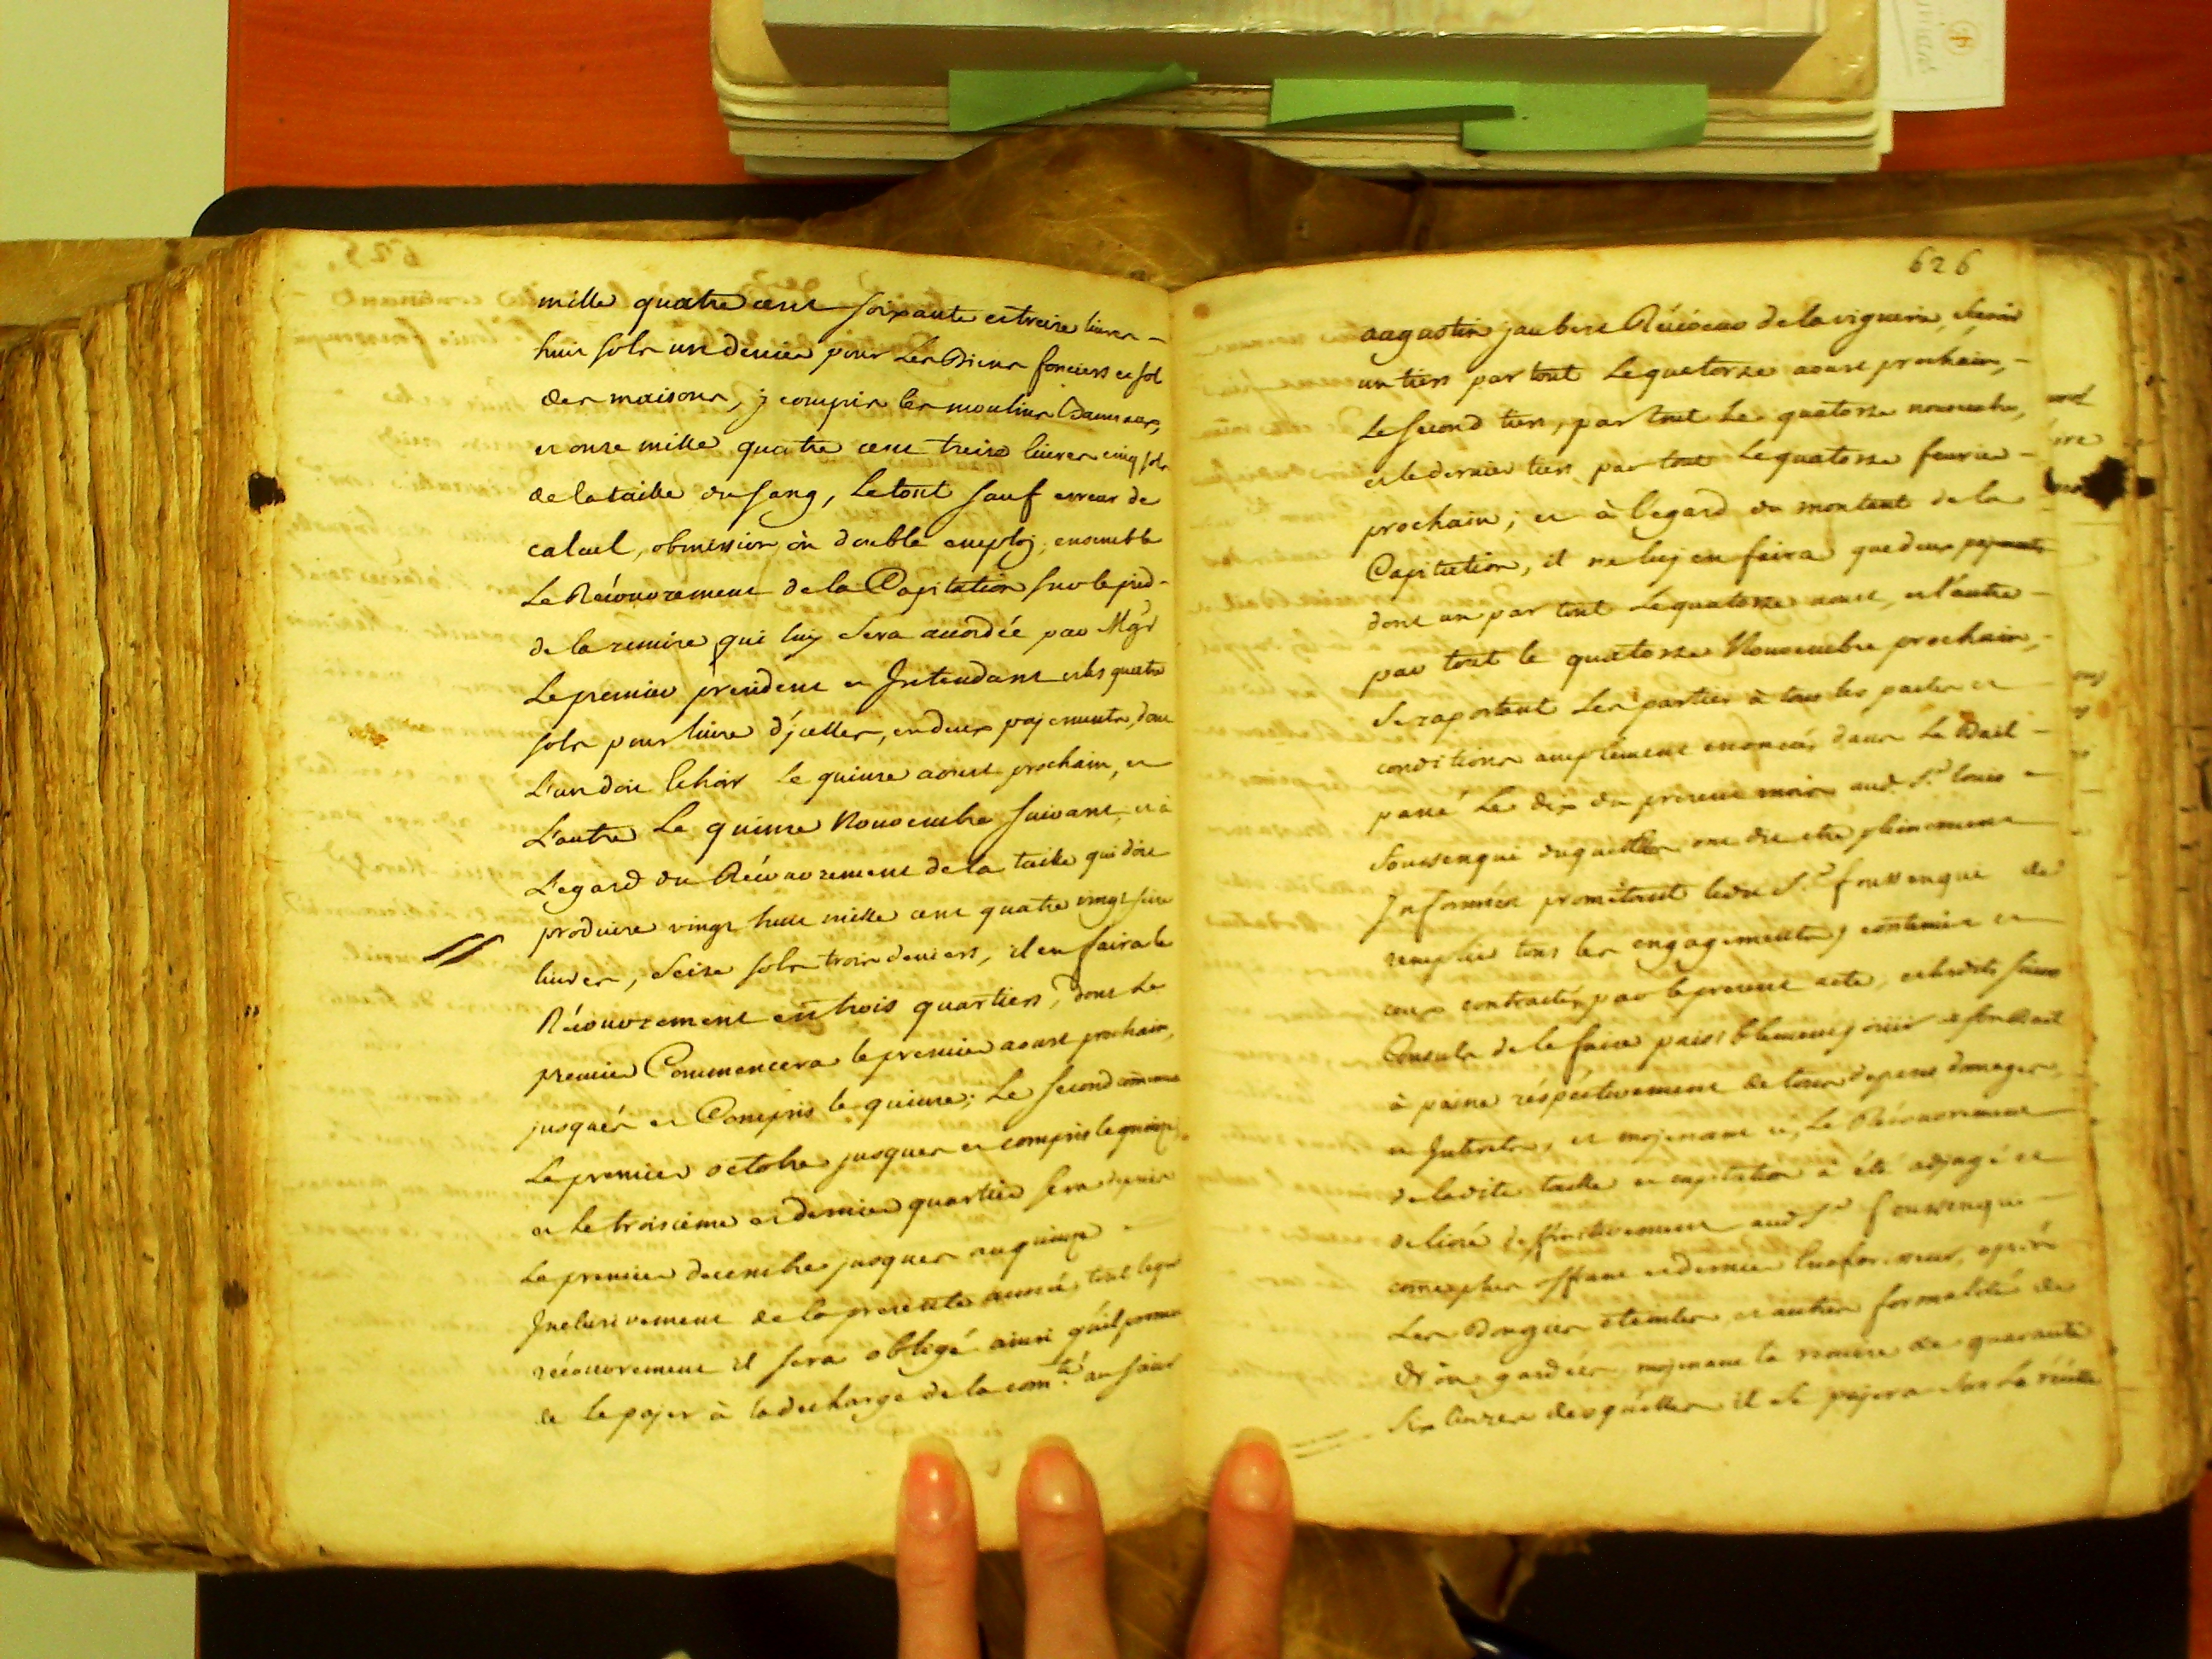 mille quatre cent soixante et treize livres -
huit sols un denier pour les Biens fonciers et sol
des maisons, y compris les moulins Bannaux,
et onze mille quatre cent treize livres cinq sols
de la taille du sang, le tout sauf erreur de
calcul, obmission ou double employ; ensemble
Le Récouvrement de la Capitation sur le pied -
de la remise qui luy sera accordée par Mgr
Le premier président et Intendant et les quatre
sols pour livre d'jcelles, en deux payements, dont
L'un doit échoir Le quinze aoust prochain, et
L'autre Le quinze Novembre suivant, et à
L'egard du Récouvrement de la taille qui doit
produire vingt huit mille cent quatre vingt seize
livres, seize sols trois deniers, il en faira le
Récouvrement en trois quartiers, dont Le
premier Commencera le premier aoust prochain,
jusqués et Compris le quinze; Le second comme
Le premier octobre jusques et compris le quinze,
et Le troisième et dernier quartier sera depuis
Le premier decembre jusques au quinze -
Inclusivement de la presente année, tout lequel
récouvrement il sera obligé ainsi qu'il promet
de le payer à la decharge de la com.té au sieur
626
augustin jaubert Récéveur de la viguerie,
un tiers par tout Le quatorze aoust prochain, -
Le second tiers, par tout Le quatorze novembre,
et le dernier tiers par tout Le quatorze fevrier -
prochain; et à l'egard du montant de la
Capitation, il ne luy en faira que deux payements
dont un par tout Le quatorze aoust, et l'autre -
par tout le quatorze Novembre prochain, -
Se raportant Les parties à tous les pactes et
conditions amplement enoncés dans Le Bail -
passé Le dix du present mois aud. S.r louis -
Foussenqui duquelles ont dit etre pleinement
Informées promettant ledit S.r foussenqui de
remplir tous les engagements, contenus et
ceux contractés par le present acte, et lesdits sieurs
Consuls de le faire paisiblement jouir de son Bail
à paine réspéctivement de tous depens domages
et Interets, et moyenant ce, Le Récouvrement
de ladite taille et capitation a été adjugé et
delivré deffinitivement aud. S.r foussenqui -
come plus offrant et dernier encherisseur, après
Les Bougies eteintes et autres formalités de
Droit gardées moyenant la remise de quarante
six livres desquelles il se payera sur La réélle